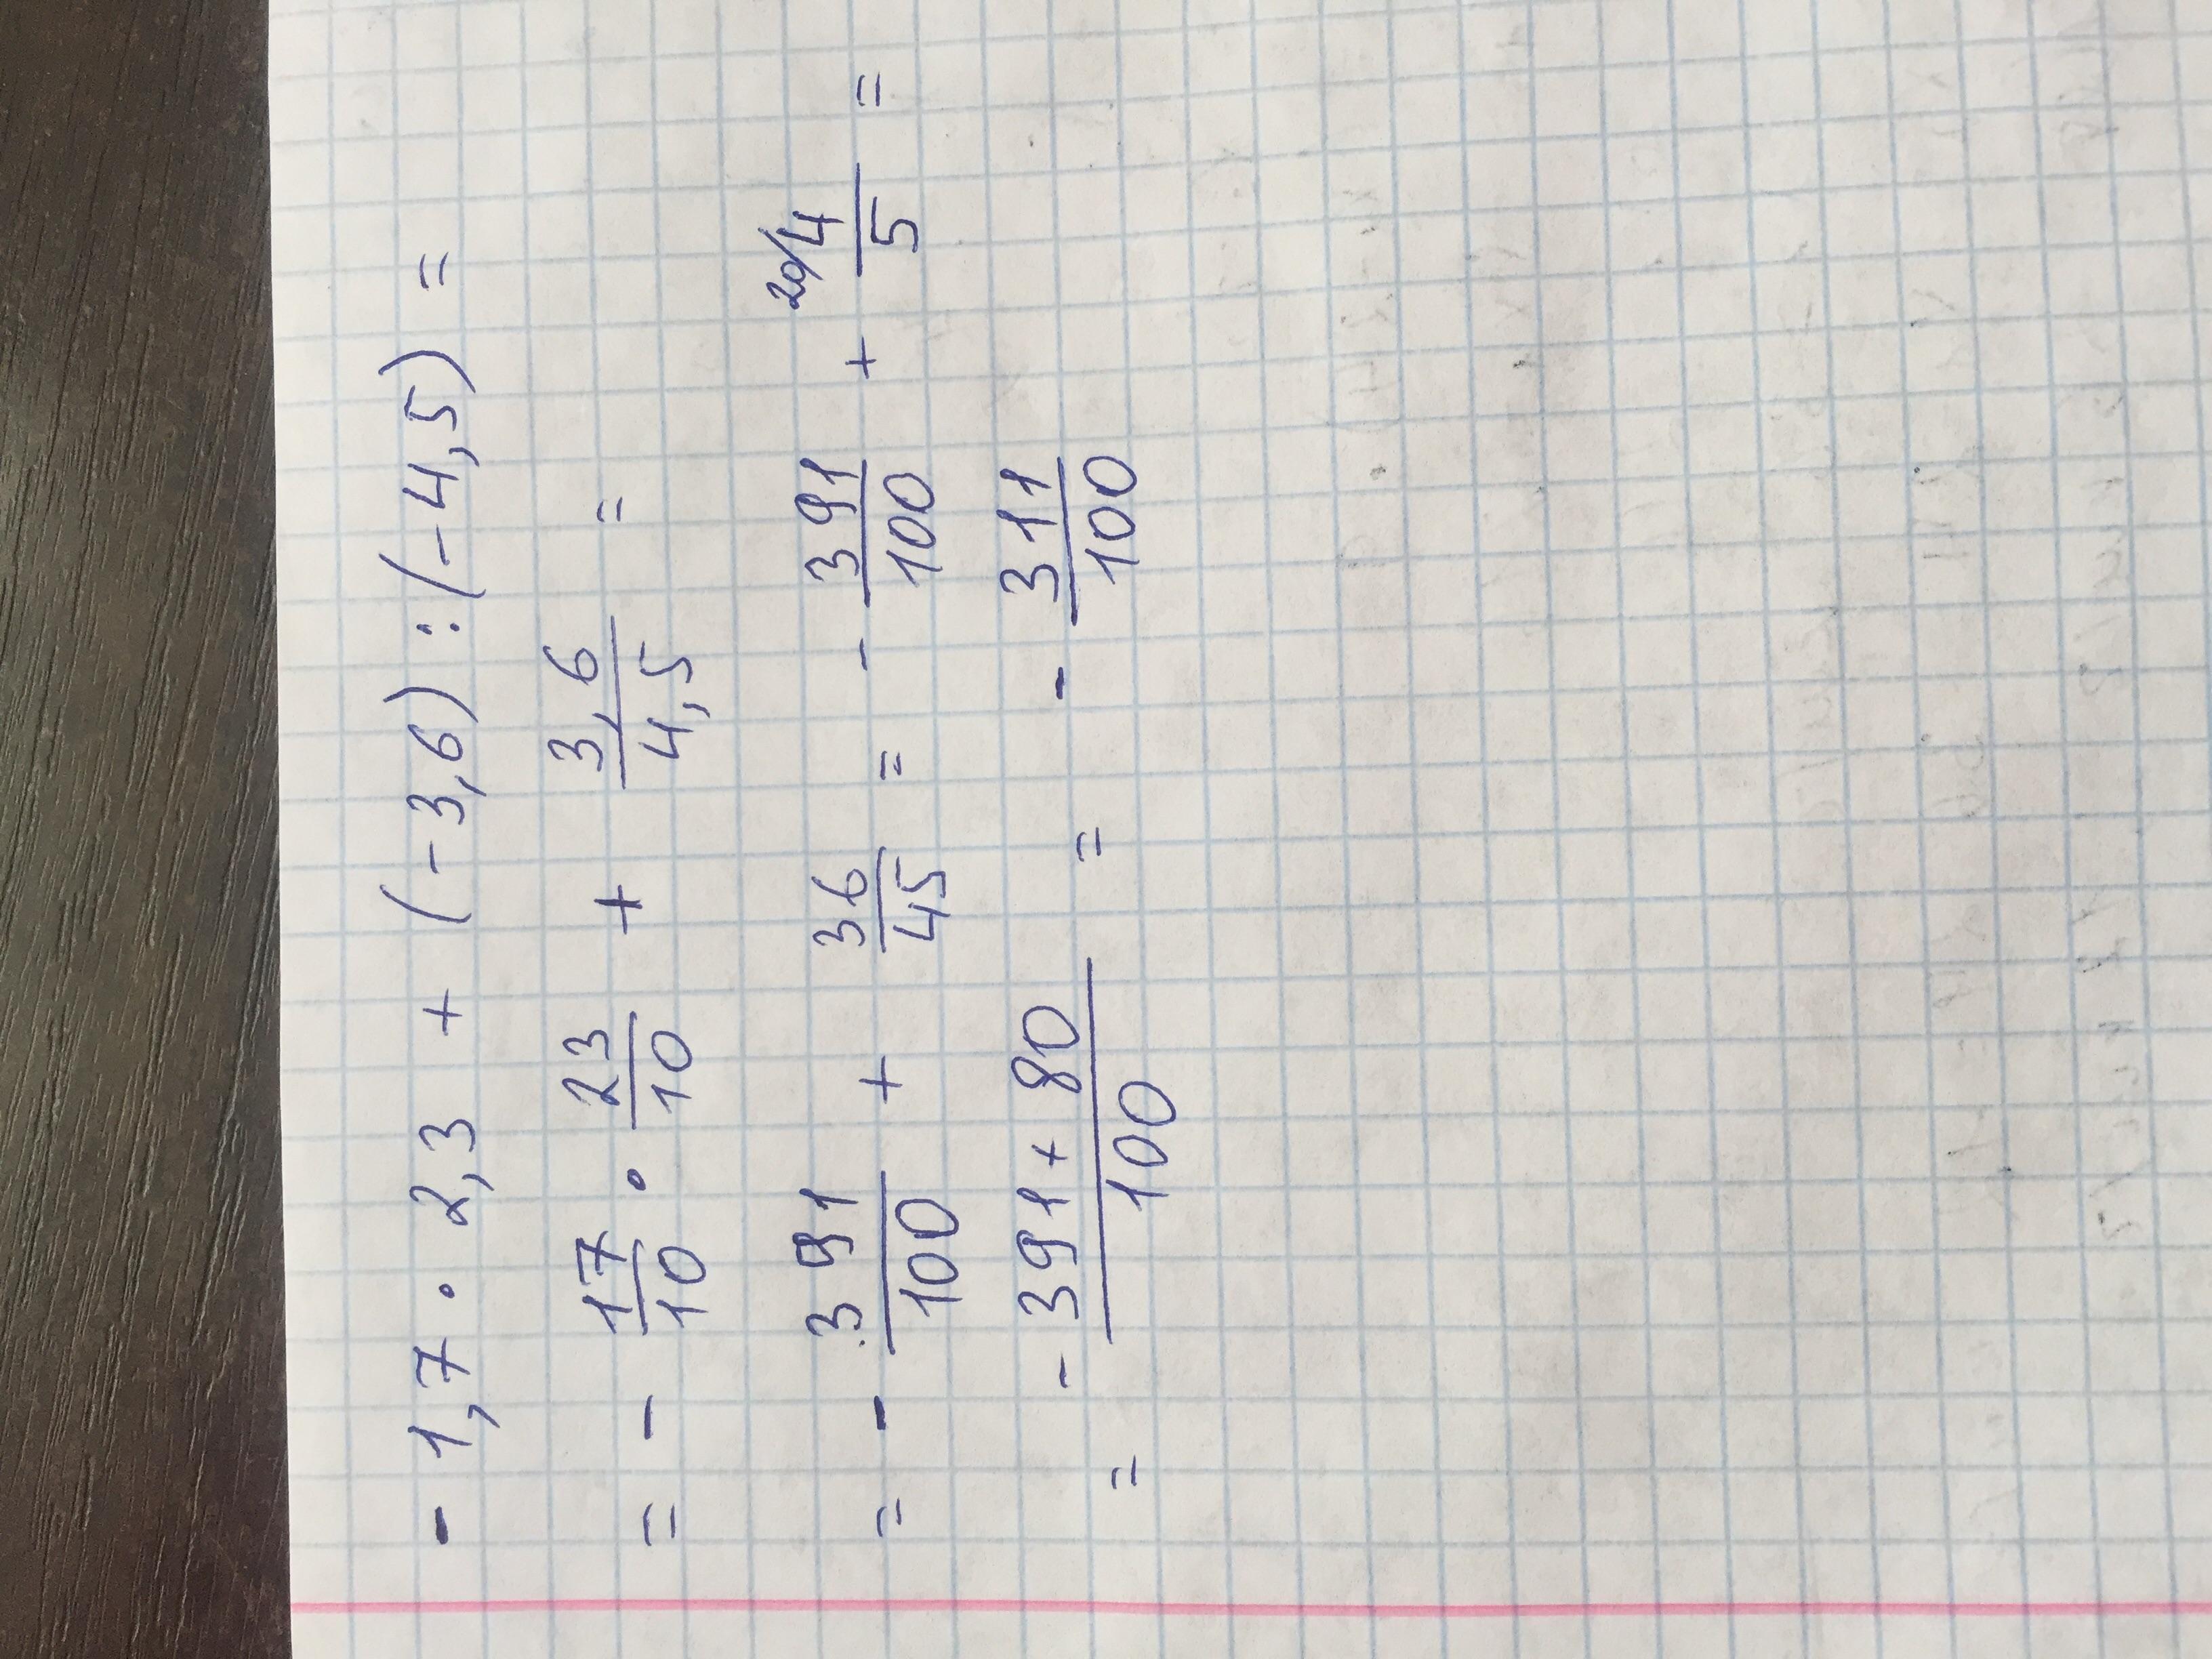 - 1,7 · 2,3 + (-3,6) : (-4,5) =
= - 17/10 · 23/10 + 3,6/4,5 =
= - 391/100 + 36/45 = - 391/100 + 20/ 4/5 =
= - 391 + 80/100 = - 311/100